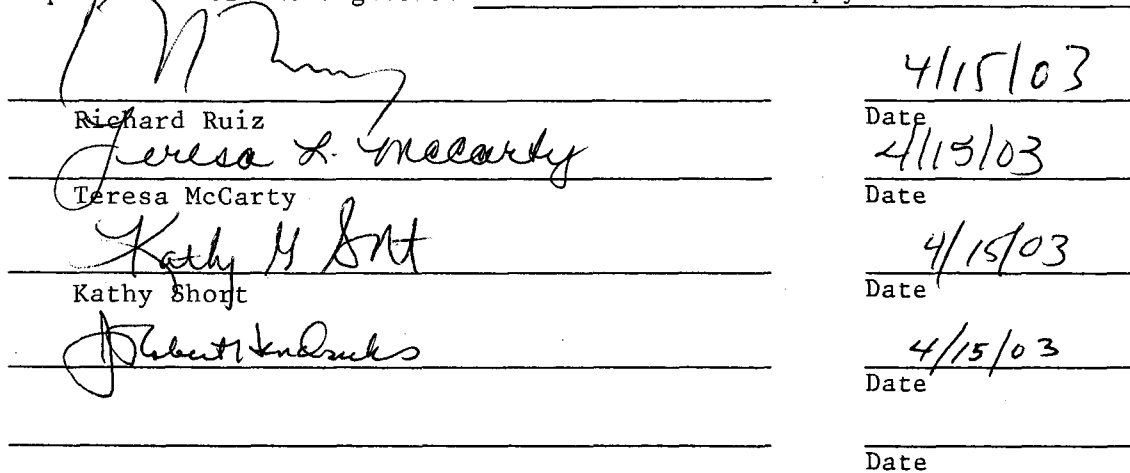 4/15/03
Richard Ruiz Date
Teresa L. McCarty 4/15/03
Teresa McCarty Date
Kathy G Short 4/15/03
Kathy Short Date
J Robert Hendricks 4/15/03
Date
Date